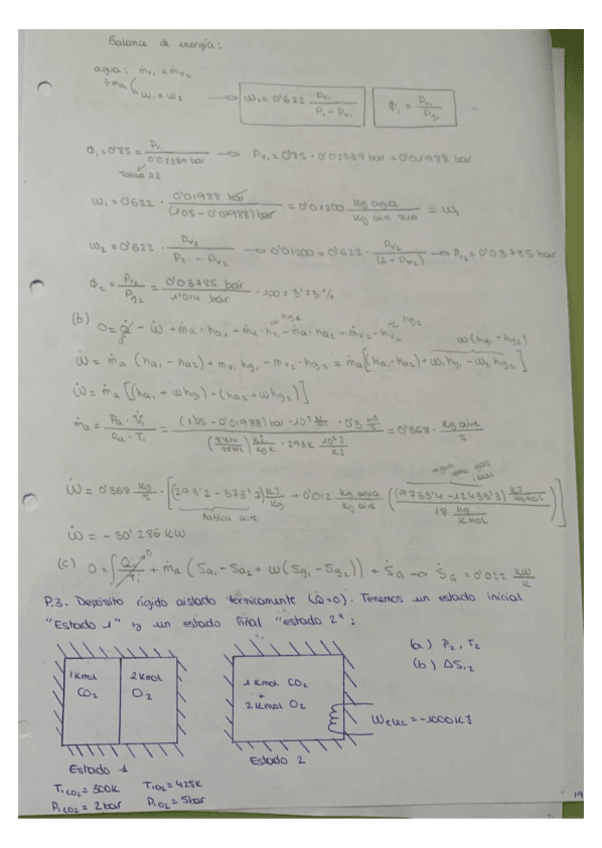 Balance de energía:
agua: ṁv₁ = ṁv₂
÷ṁa ( w₁ = w₂ → w₁ = 0'622 Pv₁ / (P₁ - Pv₁) ϕ₁ = Pv₁ / Pg₁
ϕ₁ = 0'85 = Pv₁ / 0'02339 bar → Pv₁ = 0'85 · 0'02339 bar = 0'01988 bar
tabla A2
w₁ = 0'622 · 0'01988 bar / (1'05 - 0'01988) bar = 0'01200 kg agua / kg aire seco = w₂
w₂ = 0'622 · Pv₂ / (P₂ - Pv₂) → 0'01200 = 0'622 · Pv₂ / (2 - Pv₂) → Pv₂ = 0'03785 bar
ϕ₂ = Pv₂ / Pg₂ = 0'03785 bar / 1'014 bar · 100 = 3'73 %
(b) 0 = Q̇ - Ẇ + ṁa · ha₁ + ṁv₁ · hv₁ - ṁa · ha₂ - ṁv₂ · hv₂
≈ hg₁ ≈ hg₂ w(hg₁ - hg₂)
Ẇ = ṁa (ha₁ - ha₂) + mv₁ hg₁ - mv₂ · hg₂ = ṁa [(ha₁ - ha₂) + w₁ hg₁ - w₂ hg₂]
Ẇ = ṁa [(ha₁ + whg₁) - (ha₂ + whg₂)]
ṁa = Pa · V̇₁ / Ra · T₁ = (1'05 - 0'01988) bar · 10⁵ · 0'3 m³/s / (8'314 / 28'97) kJ/kgK · 293K · 10³J/kJ = 0'368 · kg aire / s
agua como gas ideal
Ẇ = 0'368 kg/s · [(293'2 - 373'7) kJ/kg + 0'012 kg agua / kg aire ((9753'4 - 12433'3) kJ/kmol / 18 kg/kmol)]
tablas aire
Ẇ = - 30'286 KW
(c) 0 = ∫ Q̇j / Tj + ṁa (Sa₁ - Sa₂ + w(Sg₁ - Sg₂)) + ṠG → ṠG = 0'022 KW/K
P.3. Depósito rígido aislado térmicamente (Q̇=0). Tenemos un estado inicial
"Estado 1" y un estado final "estado 2":
1 Kmol CO₂
2 Kmol O₂
1 Kmol CO₂
+
2 Kmol O₂
(a) P₂, T₂
(b) ΔS₁₂
Welec = -1000 KJ
Estado 1
Estado 2
T₁CO₂ = 300K T₁O₂ = 425K
P₁CO₂ = 2bar P₁O₂ = 5bar
19